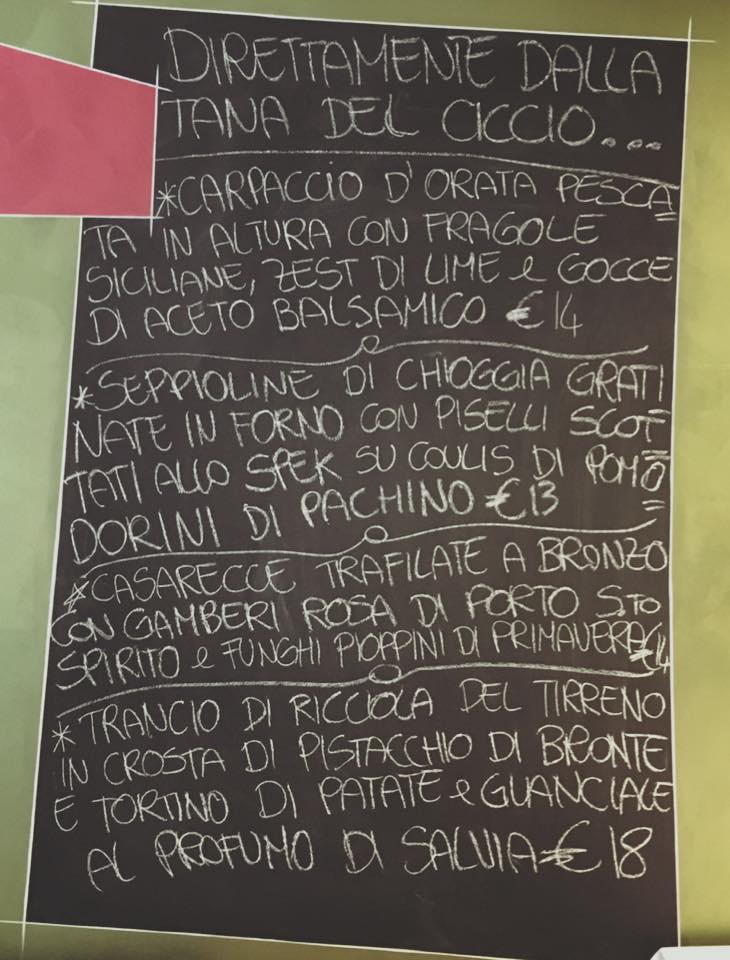 DIRETTAMENTE DALLA
TANA DEL CICCIO...
*CARPACCIO D'ORATA PESCA
TA IN ALTURA CON FRAGOLE
SICILIANE, ZEST DI LIME e GOCCE
DI ACETO BALSAMICO €14
*SEPPIOLINE DI CHIOGGIA GRATI
NATE IN FORNO CON PISELLI SCOT
TATI ALLO SPEK SU COULIS DI POMO
DORINI DI PACHINO €13
*CASARECCE TRAFILATE A BRONZO
CON GAMBERI ROSA DI PORTO STO
SPIRITO e FUNGHI PIOPPINI DI PRIMAVERA €14
*TRANCIO DI RICCIOLA DEL TIRRENO
IN CROSTA DI PISTACCHIO DI BRONTE
E TORTINO DI PATATE e GUANCIALE
AL PROFUMO DI SALVIA €18